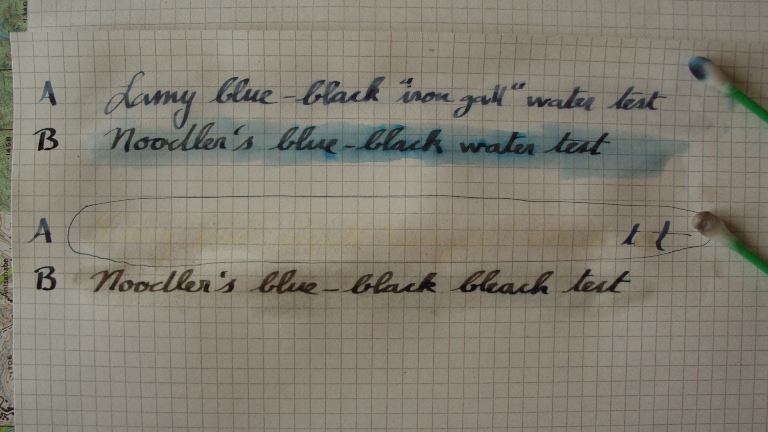 A Lamy blue-black "iron gall" water test
B Noodler's blue-black water test
A t t
B Noodler's blue-black bleach test